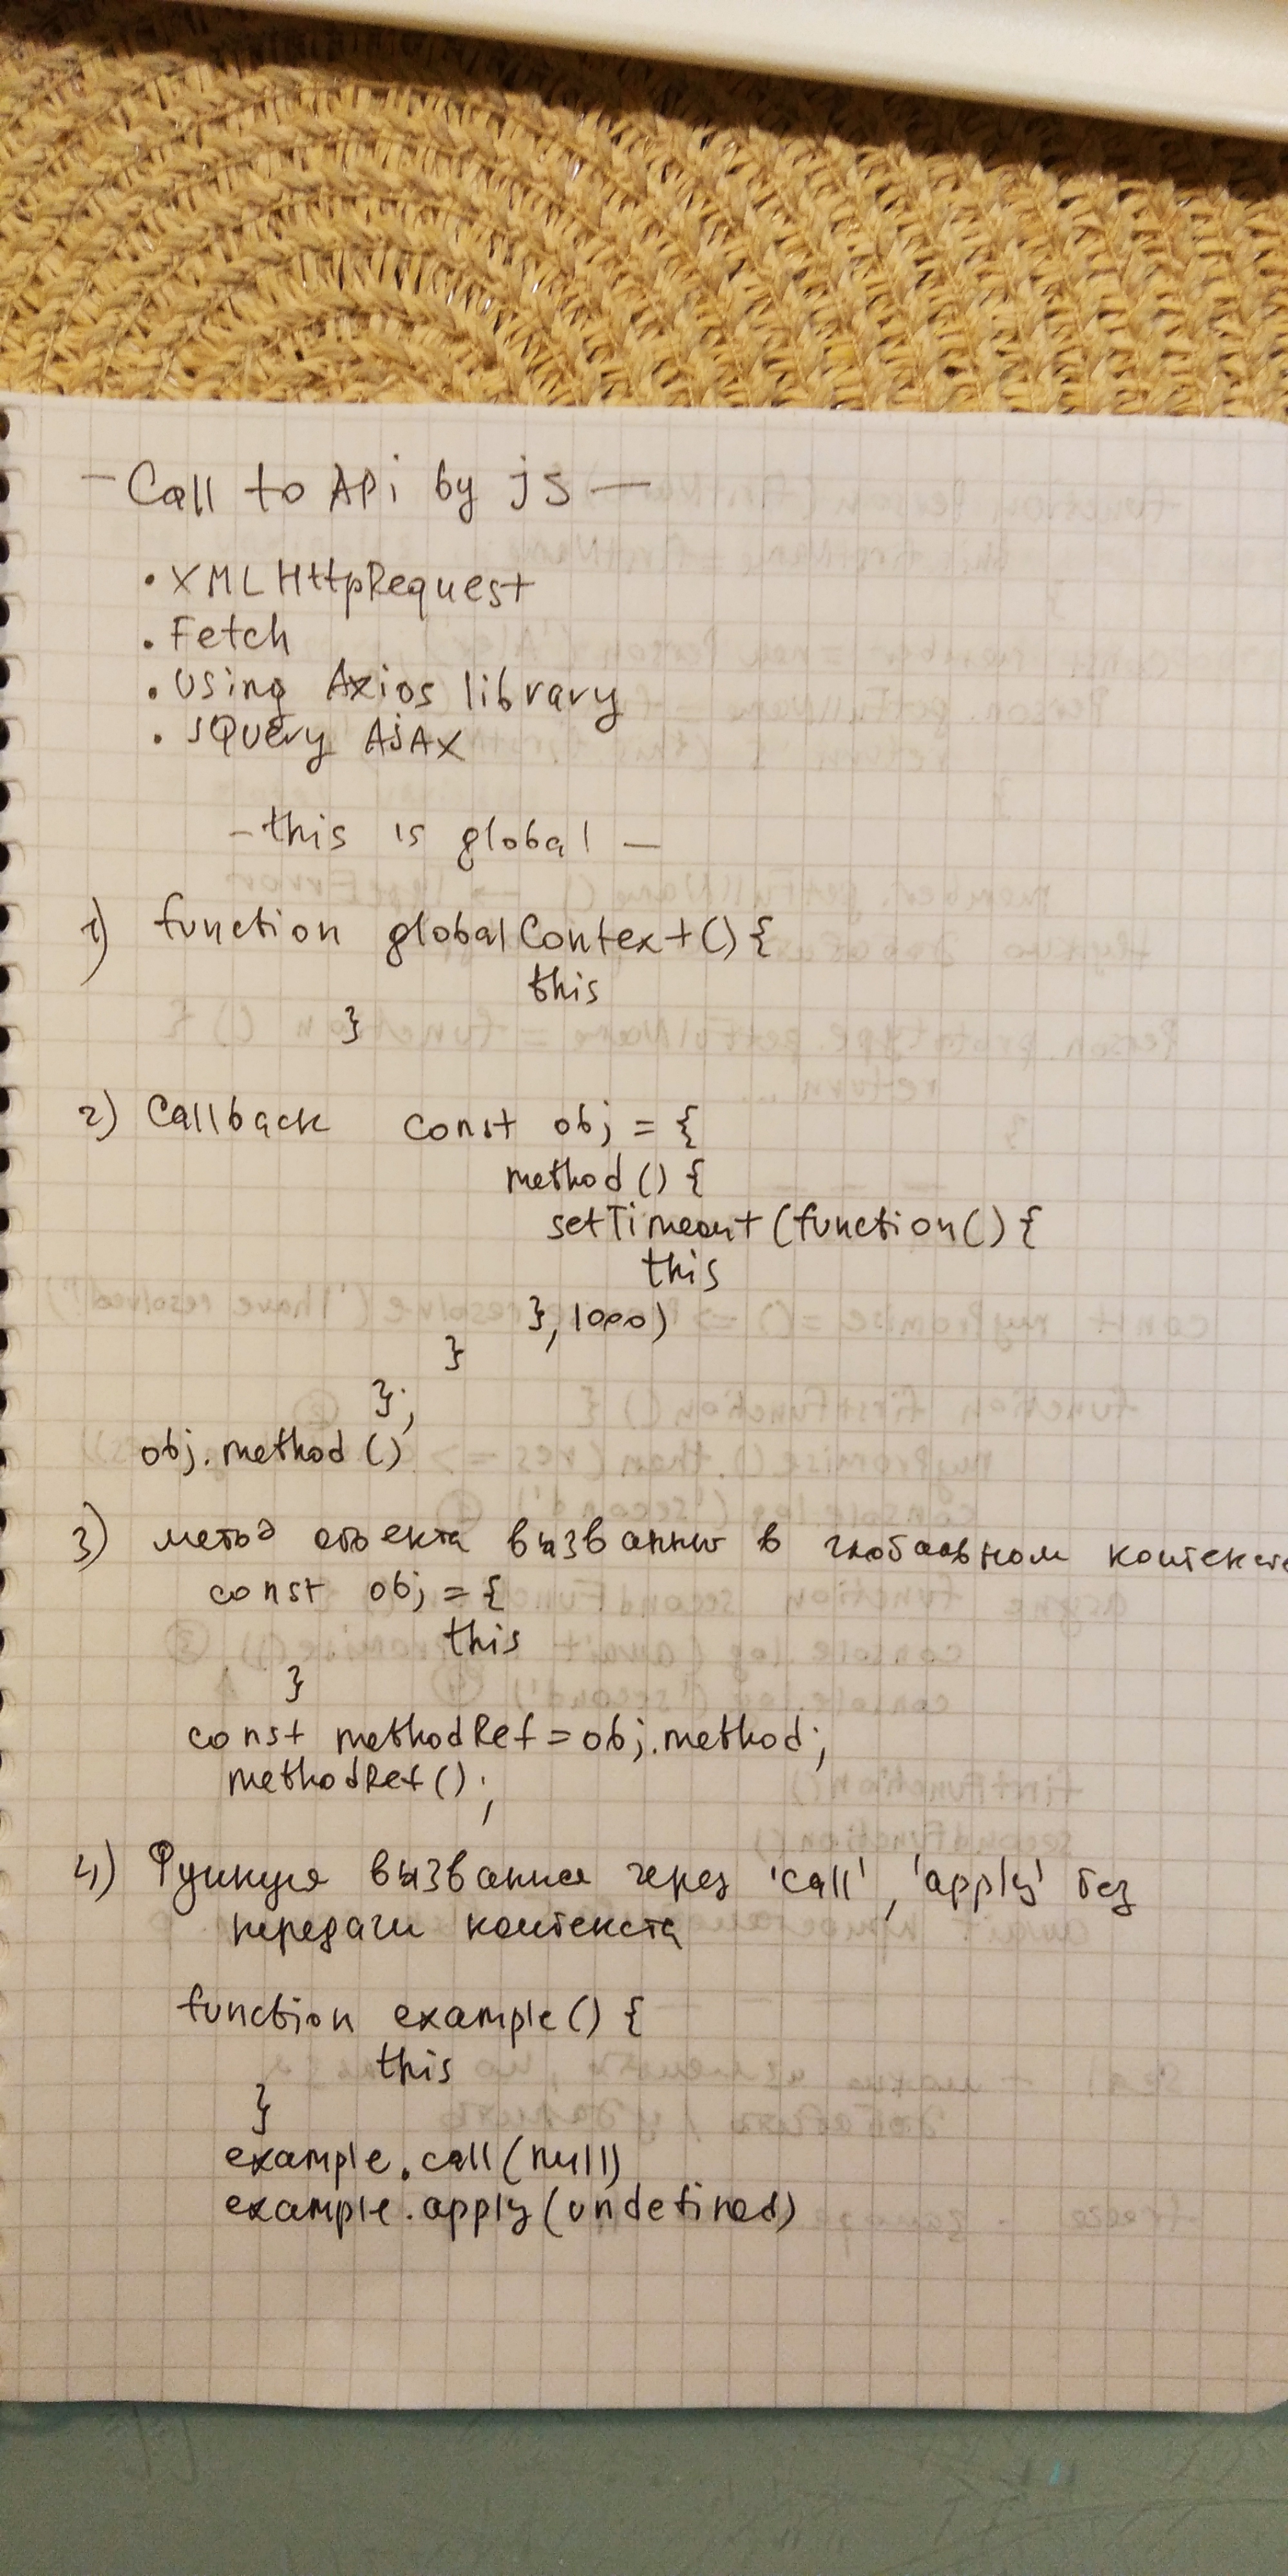 - Call to APi by js -
. XMLHttpRequest
. Fetch
. Using Axios library
. JQuery AJAX
- this is global -
1) function globalContext() {
this
}
2) Callback const obj = {
method () {
setTimeout (function() {
this
}, 1000)
}
};
obj.method ()
3) метод объекта вызванный в глобальном контексте
const obj = {
this
}
const methodRef = obj.method;
methodRef();
4) Функция вызванная через 'call', 'apply' без
передачи контекста
function example() {
this
}
example.call(null)
example.apply(undefined)